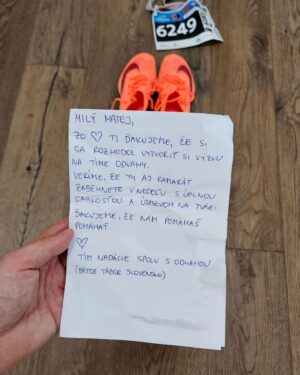 6249
MILÝ MATEJ,
ZO ♡ TI ĎAKUJEME, ŽE SI
SA ROZHODOL VYTVORIŤ SI VÝZVU
NA TÍME ODVAHY.
VERÍME, ŽE TY AJ KAMARÁT
ZABEHNETE V NEDEĽU S ÚPLNOU
ĽAHKOSŤOU A ÚSMEVOM NA TVÁRI.
ĎAKUJEME, ŽE NÁM POMÁHAŠ
POMÁHAŤ.
♡
TÍM NADÁCIE SPOLU S ODVAHOU
(BÁTOR TÁBOR SLOVENSKO)